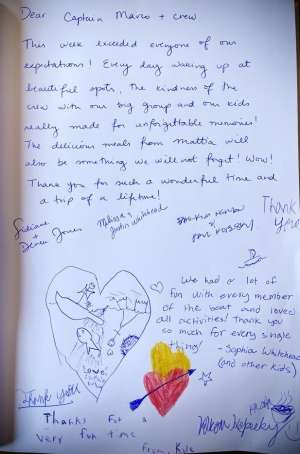 Dear Captain Marco + crew
This week exceeded everyone of our
expectations! Every day waking up at
beautiful spots, the kindness of the
crew with our big group and our kids
really made for unforgettable memories!
The delicious meals from Mattia will
also be something we will not forget! Wow!
Thank you for such a wonderful time and
a trip of a lifetime!
+
Jones
Melissa +
Justin Whitehead
Thank
you
We had a lot of
fun with every member
of the boat and loved
all activities! Thank you
so much for every single
thing! - Sophia Whitehead
(and other kids)
Love
Thank You
Thanks For a
very fun time
From: Kyle